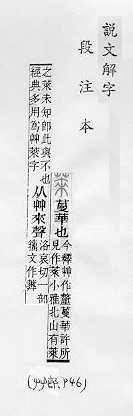 說文解字
段注本
萊
蔓華也
今釋艸作釐蔓華許所
見作萊小雅北山有萊
之萊未知卽此與不也
經典多用爲艸萊字
从艸來聲
洛哀切一部